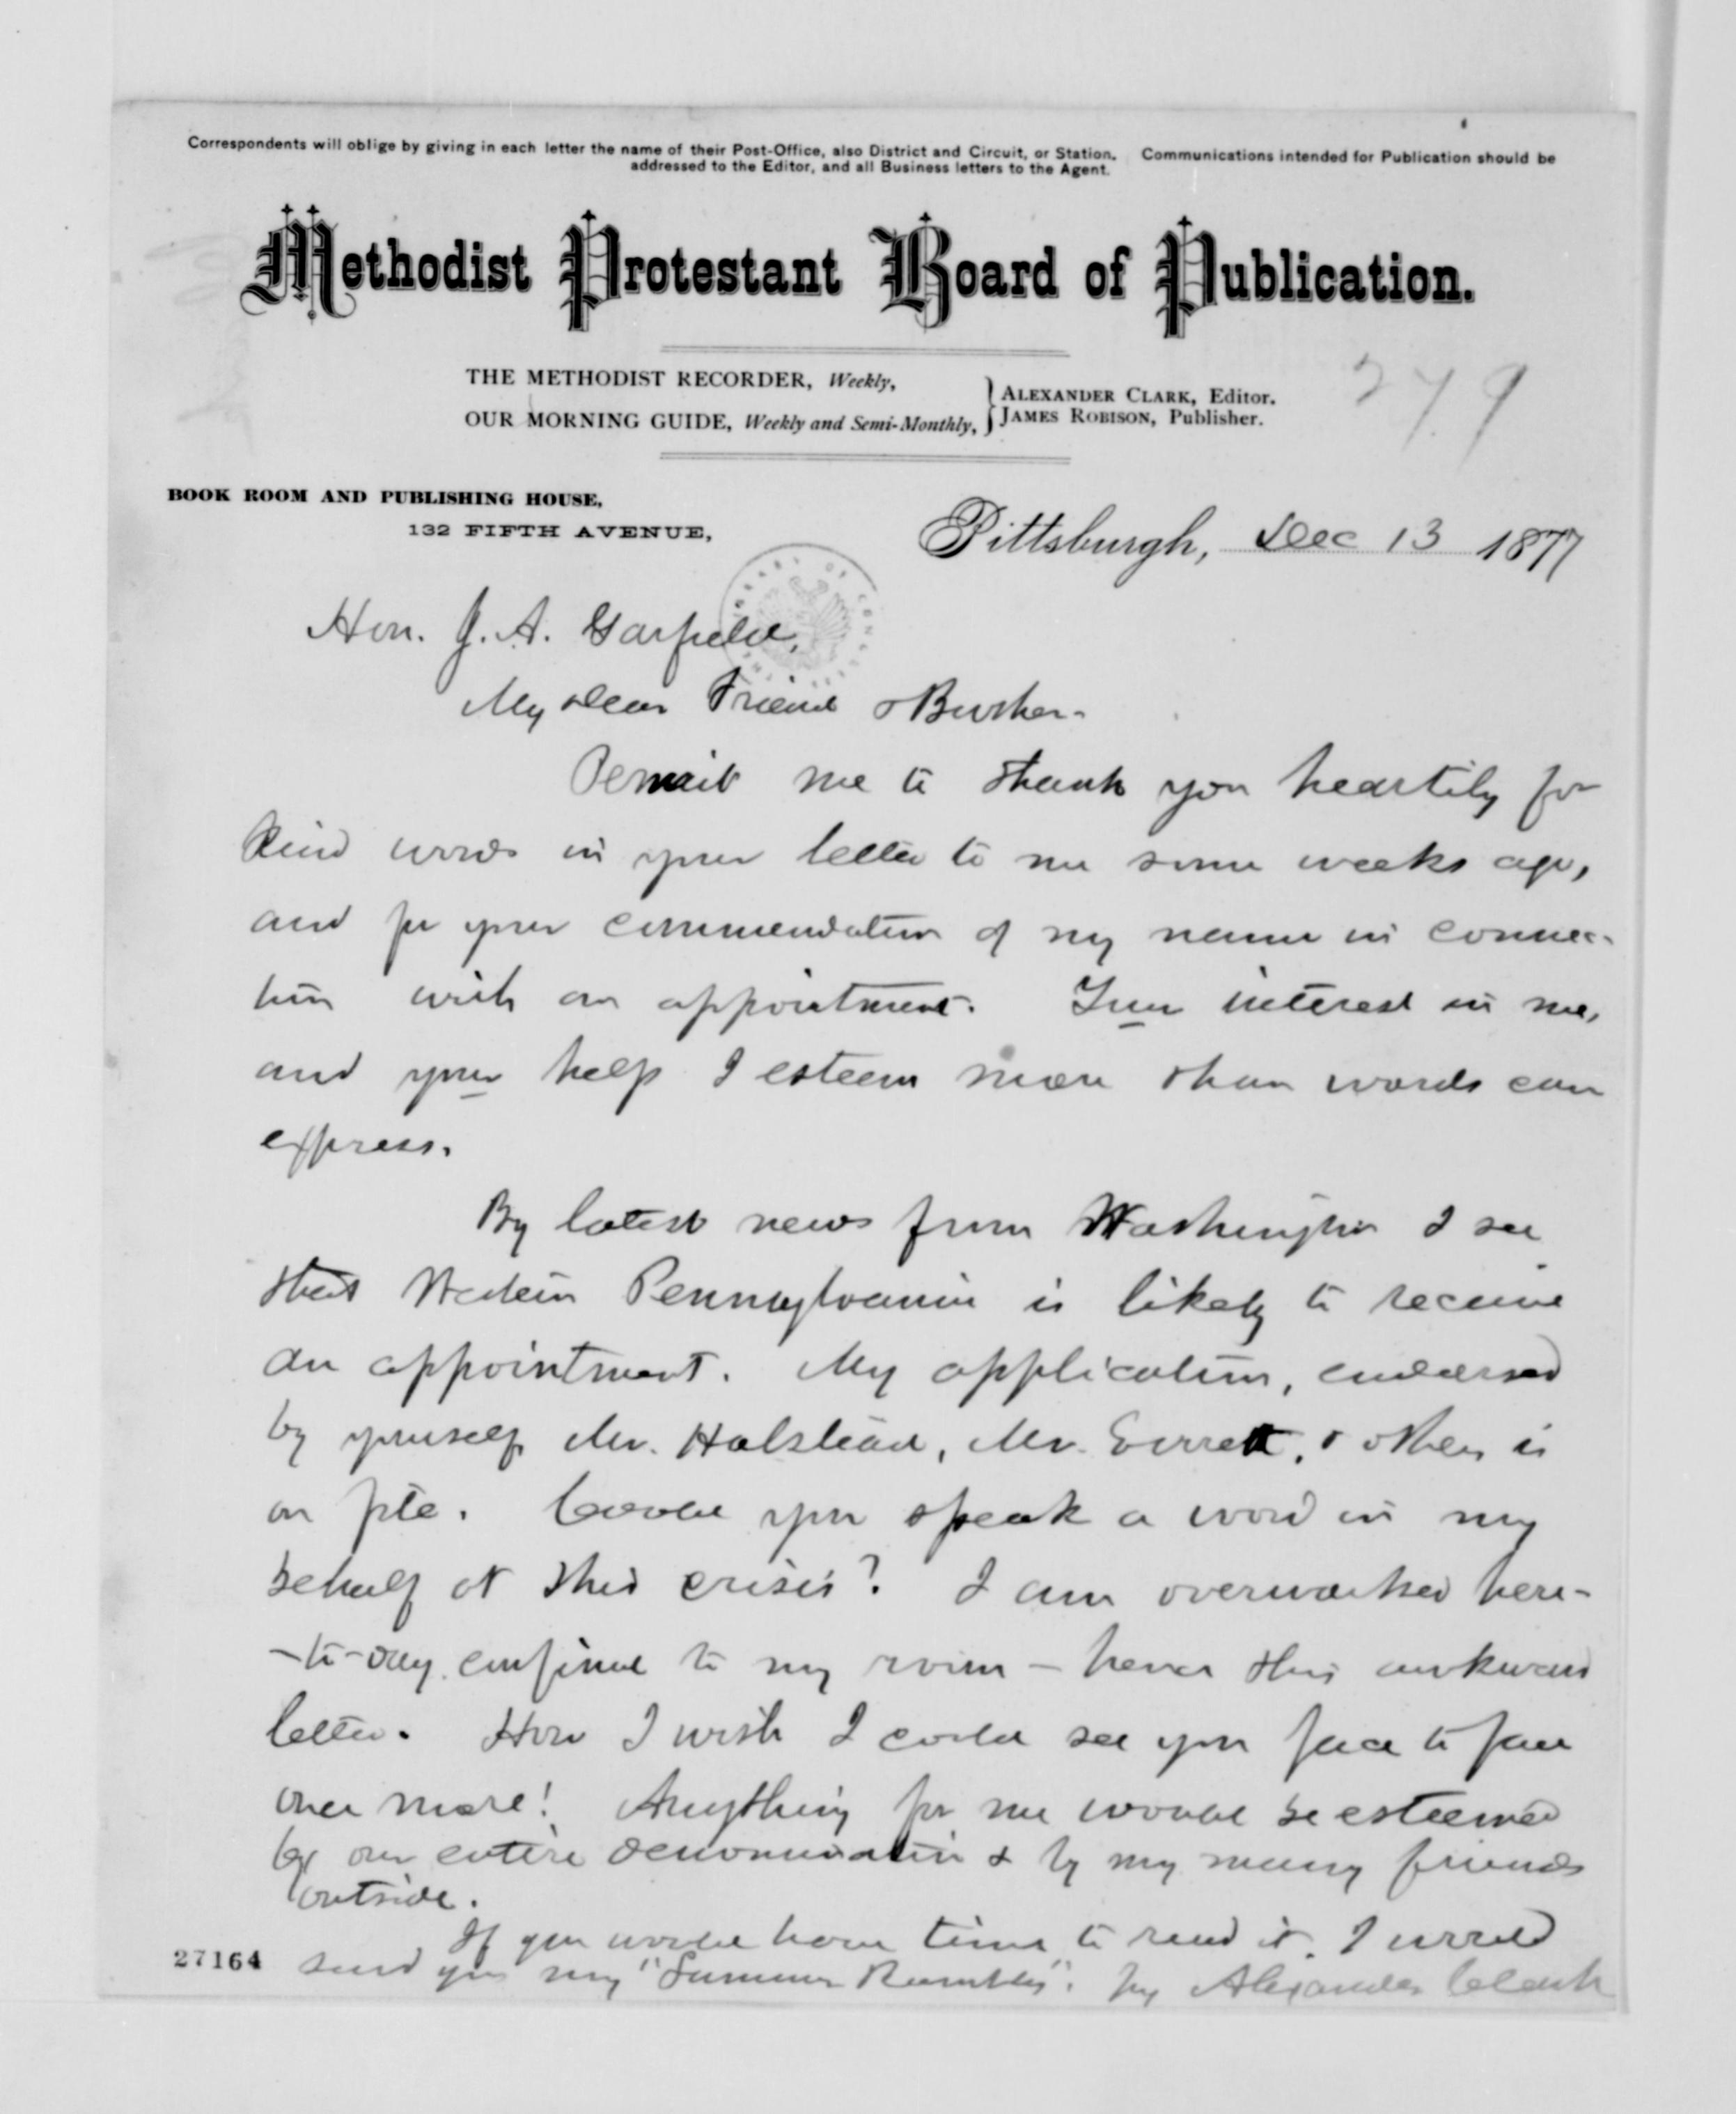 Correspondents will oblige by giving in each letter the name of their Post-Office, also District and Circuit, or Station. Communications intended for Publication should be
addressed to the Editor, and all Business letters to the Agent.
Methodist Protestant Board of Publication.
THE METHODIST RECORDER, Weekly,
OUR MORNING GUIDE, Weekly and Semi-Monthly,
ALEXANDER CLARK, Editor.
JAMES ROBISON, Publisher.
279
BOOK ROOM AND PUBLISHING HOUSE,
132 FIFTH AVENUE,
Pittsburgh, Dec 13 1877
Hon. J. A. Garfield,
My dear Friend & Brother-
Permit me to thank you heartily for
kind words in your letter to me some weeks ago,
and for your commendation of my name in connec-
tion with an appointment. Your interest in me,
and your help I esteem more than words can
express.
By latest news from Washington I see
that Western Pennsylvania is likely to receive
an appointment. My application, endorsed
by yourself, Mr. Halstead, Mr. Errett, & others is
on file. Could you speak a word in my
behalf at this crisis? I am overworked here-
-to-day confined to my room - hence this awkward
letter. How I wish I could see you face to face
once more! Anything for me would be esteemed
by our entire denomination & by my many friends
outside.
If you would have time to read it, I would
send you my "Summer Rambles". by Alexander Clark
27164